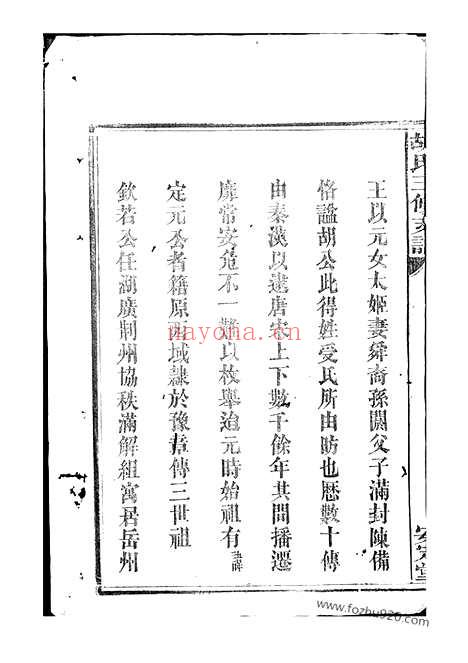 胡氏三修支譜
王以元女太姬妻舜裔孫閼父子滿封陳備
恪謚胡公此得姓受氏所由昉也歷數十傳
由秦漢以逮唐宋上下數千餘年其間播遷
靡常安危不一難以枚舉迨元時始祖有諱
定元公者籍原西域隸於豫章傳三世祖
欽若公任湖廣荆州協秩滿解組寓居岳州
安定堂
nayona.cn
www.fozhu920.com